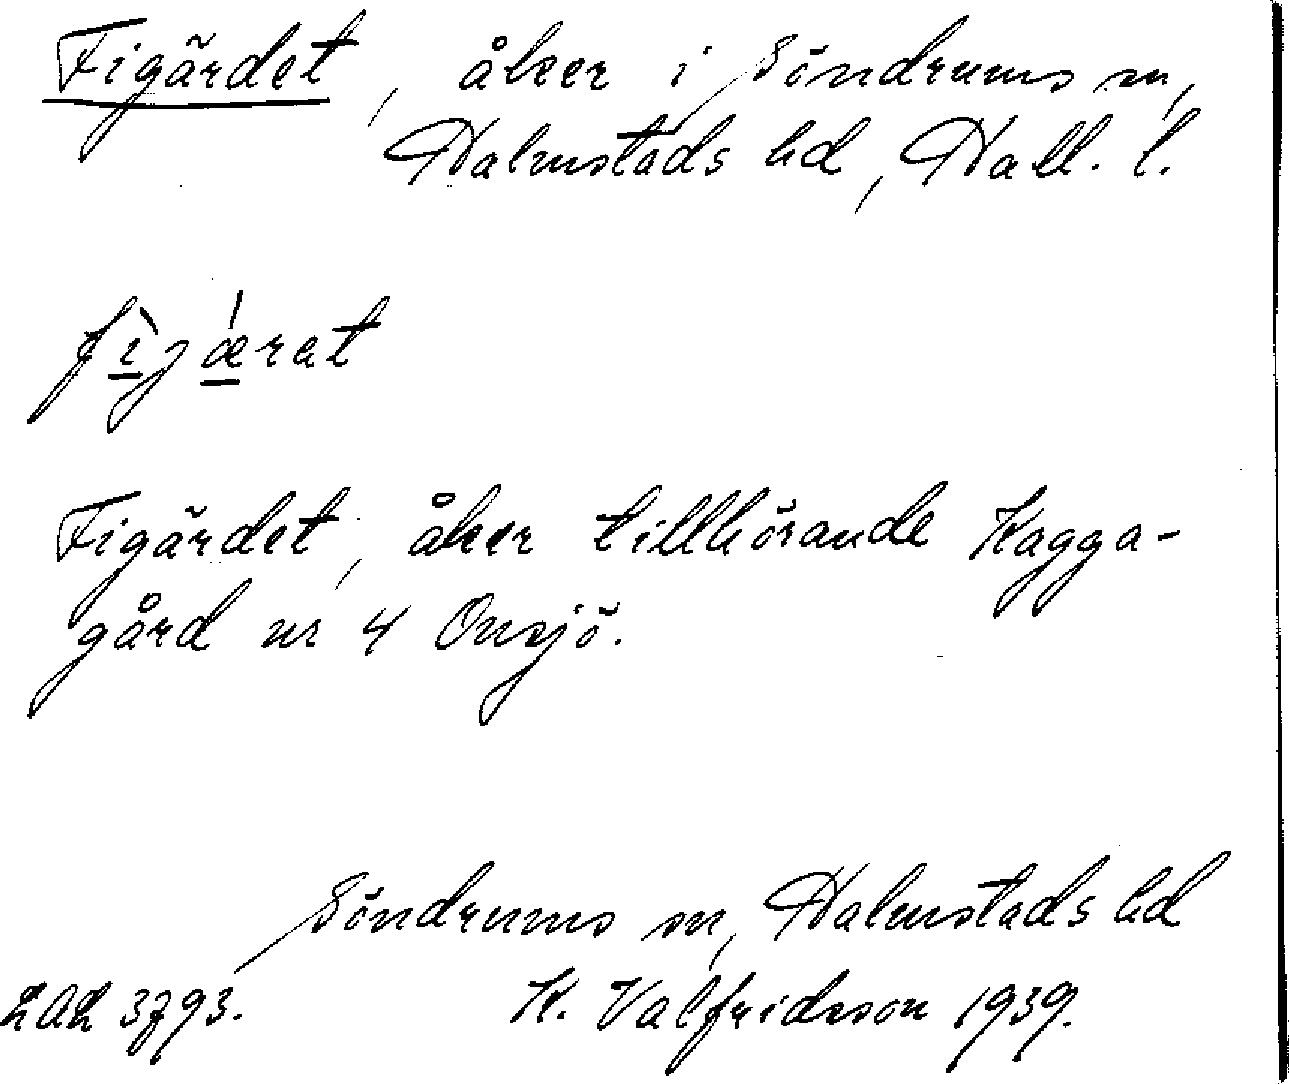 Figärdet, åker i Söndrums sn,
Halmstads hd, Hall. l.
fìjǽrat
Figärdet, åker tillhörande Kagga-
gård nr 4 Onsjö.
Söndrums sn, Halmstads hd
3793. K. Valfridsson 1939.